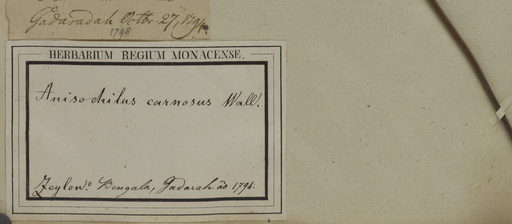 Gadaradah Octbr. 27, 1794.
1798
HERBARIUM REGIUM MONACENSE.
Anisochilus carnosus Wall.
Zeylon? Bengala, Gadarah ao 1794.